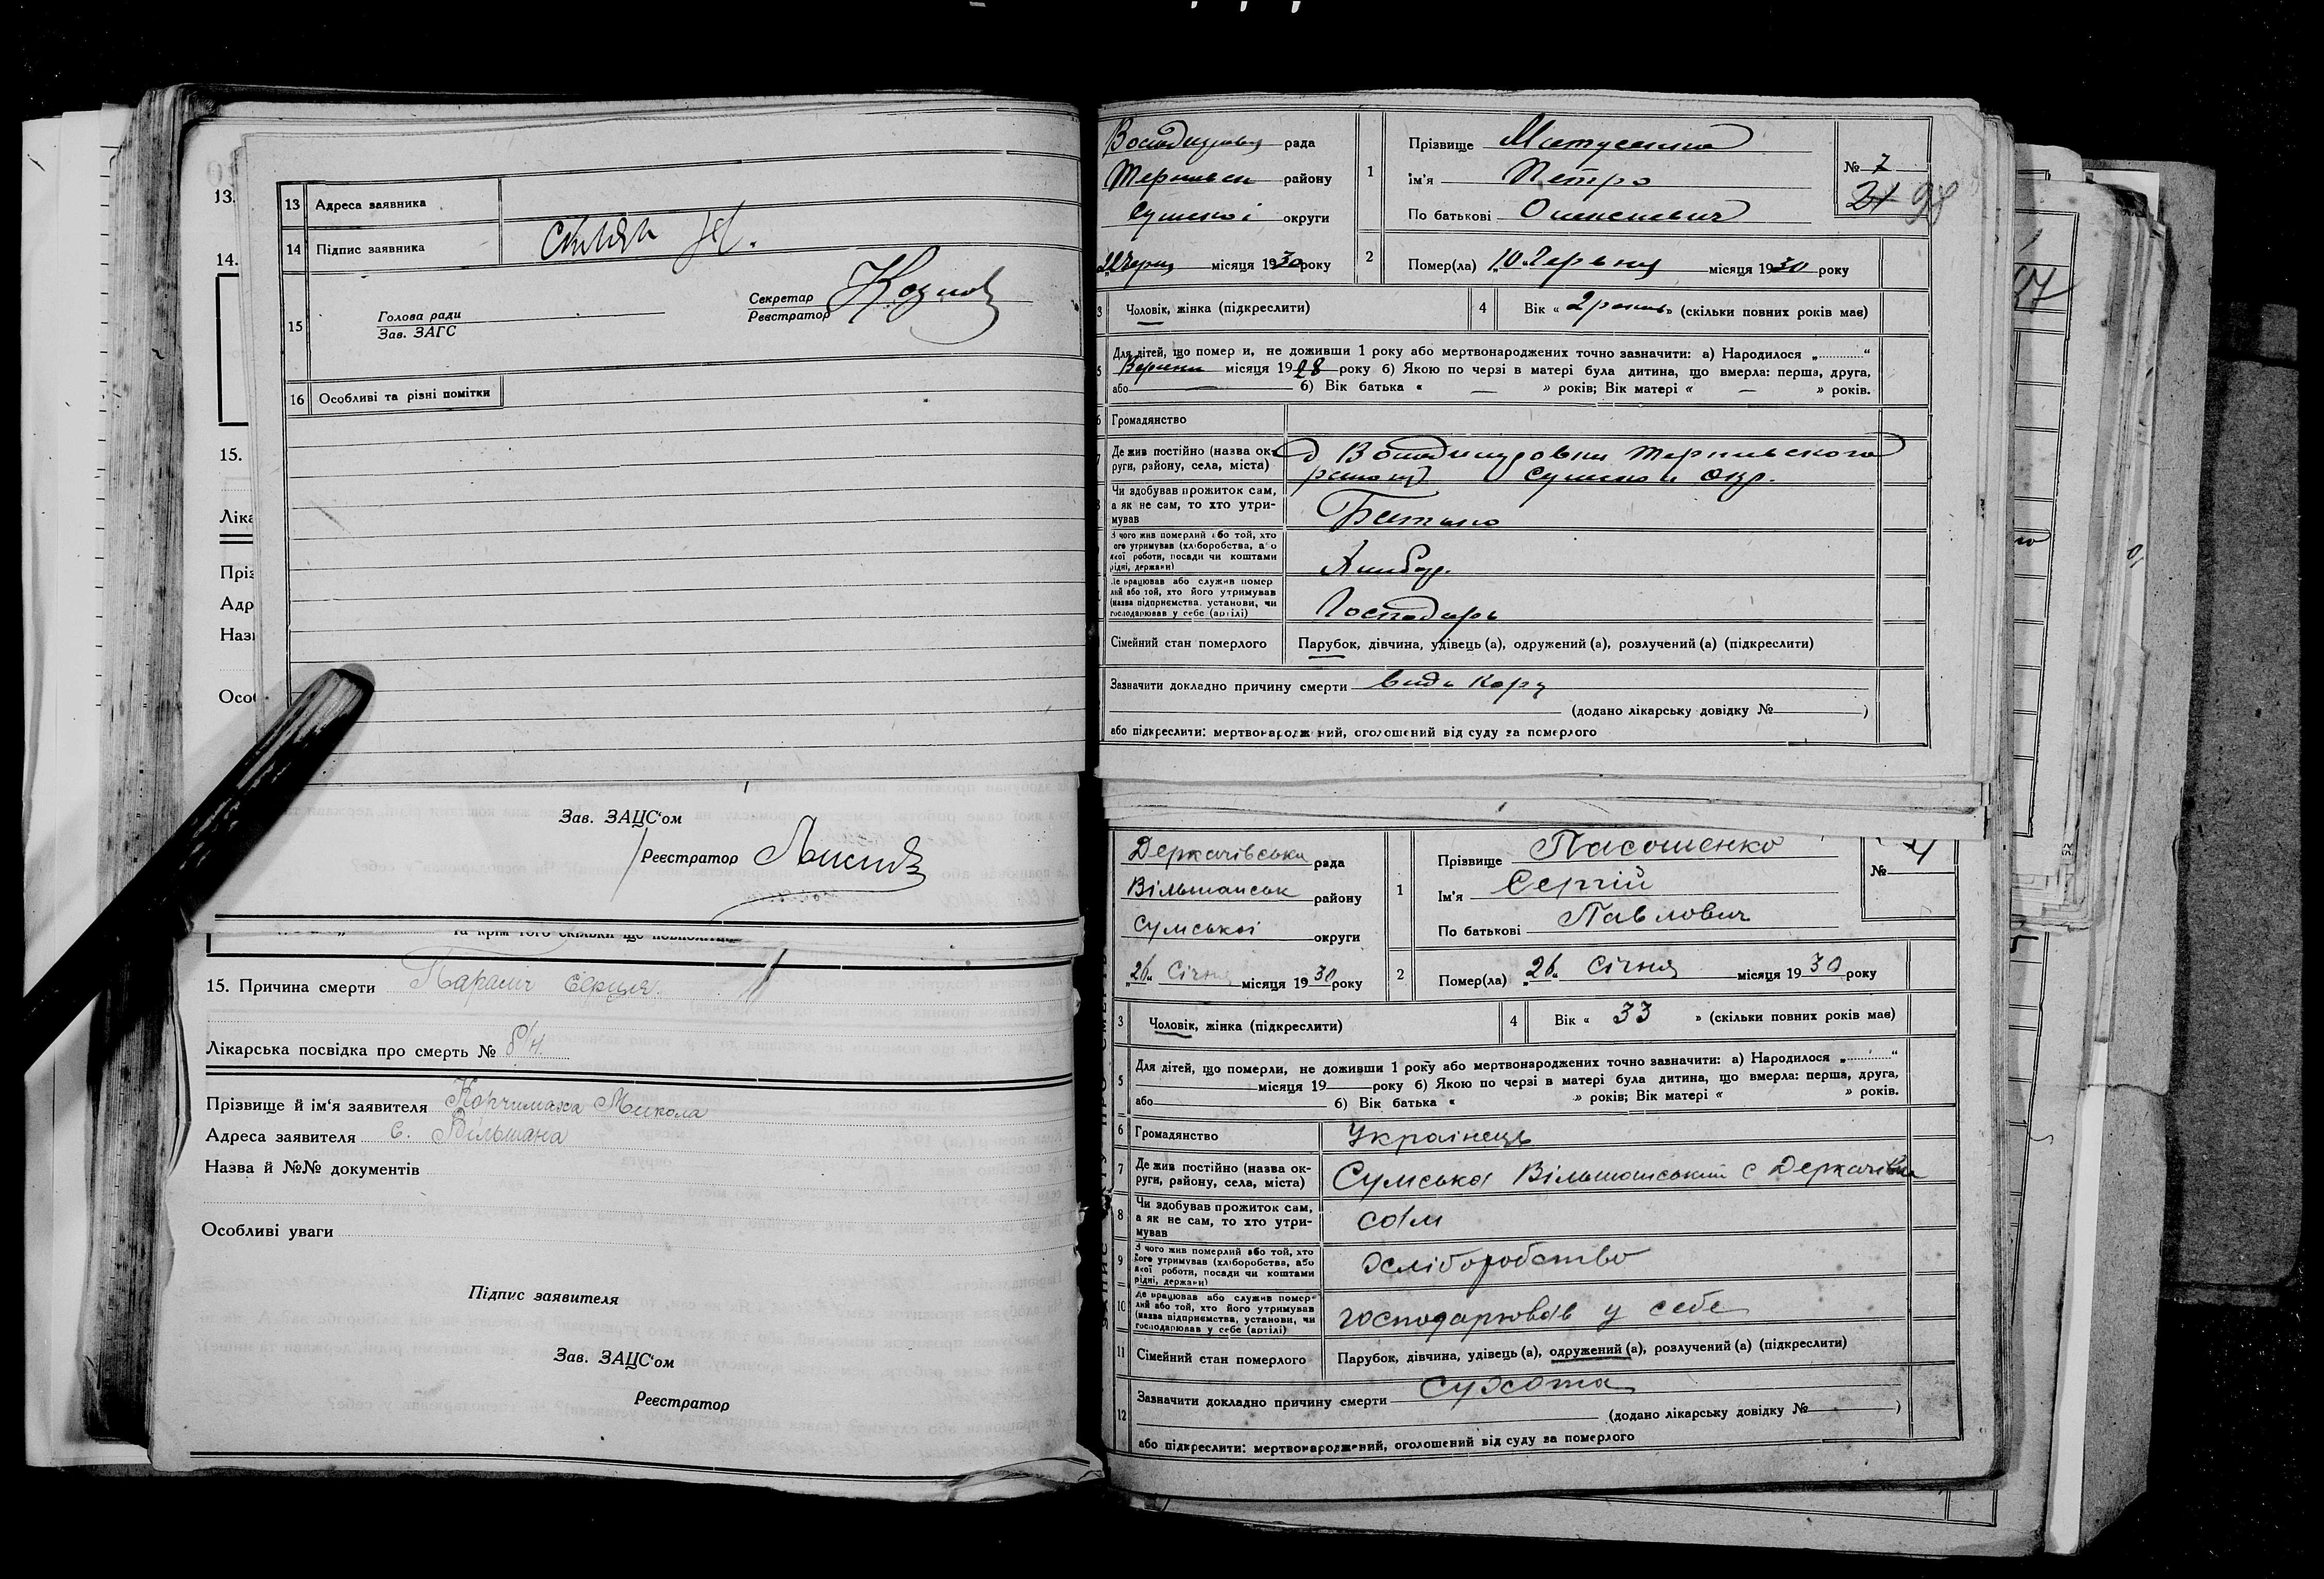 13.
14.
15.
13 Адреса заявника
14 Підпис заявника
15
Голова ради
Зав. ЗАГС
Секретар
Реєстратор
16 Особливі та різні помітки
Зав. ЗАЦС'ом
Реєстратор
15. Причина смерти Параліч Серця
Лікарська посвідка про смерть № б/н.
Прізвище й ім'я заявителя Микола
Адреса заявителя с. Вільшана
Назва й №№ документів
Особливі уваги
Підпис заявителя
Зав. ЗАЦС'ом
Реєстратор
рада
району
Сумської округи
місяця 1930 року
1 Прізвище
ім'я Петро
По батькові
№ 7
21 98
2 Помер(ла) „10 Червня місяця 1930 року
3 Чоловік, жінка (підкреслити)
4 Вік « 2 роки » (скільки повних років має)
Для дітей, що померли, не доживши 1 року або мертвонароджених точно зазначити: а) Народилося „ “
місяця 1928 року б) Якою по черзі в матері була дитина, що вмерла: перша, друга,
або — 6) Вік батька « — » років; Вік матері « — » років.
Громадянство
Де жив постійно (назва ок-
руги, району, села, міста)
Чи здобував прожиток сам,
а як не сам, то хто утри-
мував
Батько
З чого жив померлий або той, хто
його утримував (хліборобства, або
якої роботи, посади чи коштами
рідні, держави)
Хлібор.
Де працював або служив помер
лий або той, хто його утримував
(назва підприємства, установи, чи
господарював у себе (артілі)
Господарь
Сімейний стан померлого Парубок, дівчина, удівець (а), одружений (а), розлучений (а) (підкреслити)
Зазначити докладно причину смерти видь кору
(додано лікарську довідку № )
або підкреслити: мертвонароджений, оголошений від суду за померлого
Деркачівська рада
Вільшанськ району
Сумської округи
„26“ Січня місяця 1930 року
1 Прізвище Пасошенко
Ім'я Сергій
По батькові Павлович
№ 4
2 Помер(ла) „26“ Січня місяця 1930 року
3 Чоловік, жінка (підкреслити)
4 Вік « 33 » (скільки повних років має)
5 Для дітей, що померли, не доживши 1 року або мертвонароджених точно зазначити: а) Народилося „ “
місяця 19 року б) Якою по черзі в матері була дитина, що вмерла: перша, друга,
або 6) Вік батька « » років; Вік матері « » років.
6 Громадянство Українець
7 Де жив постійно (назва ок-
руги, району, села, міста)
Сумська Вільшанський с Деркачівка
8 Чи здобував прожиток сам,
а як не сам, то хто утри-
мував
сам
9 З чого жив померлий або той, хто
його утримував (хліборобства, або
якої роботи, посади чи коштами
рідні, держави)
хліборобство
10 Де працював або служив помер-
лий або той, хто його утримував
(назва підприємства, установи, чи
господарював у себе (артілі)
господарював у себе
11 Сімейний стан померлого Парубок, дівчина, удівець (а), одружений (а), розлучений (а) (підкреслити)
12 Зазначити докладно причину смерти Сухота
(додано лікарську довідку № )
або підкреслити: мертвонароджений, оголошений від суду за померлого